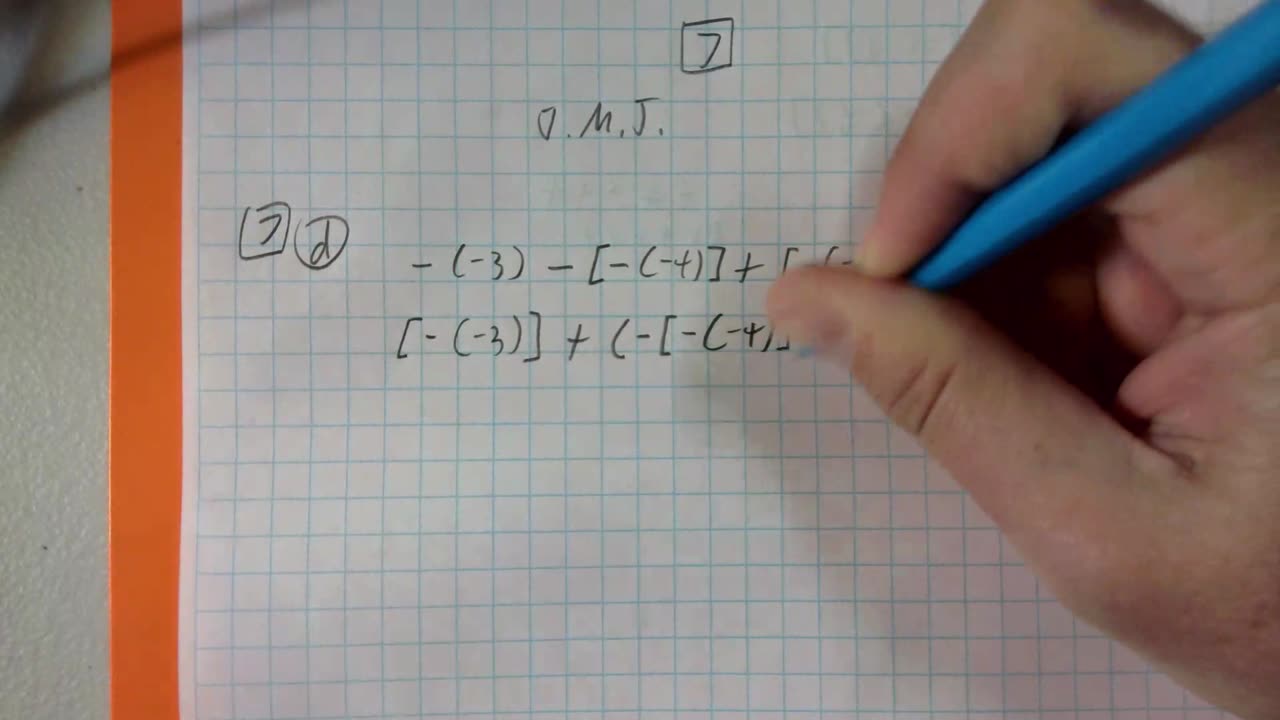 7
J.M.J.
7 d -(-3) - [-(-4)] + [-(-
[-(-3)] + (-[-(-4)]